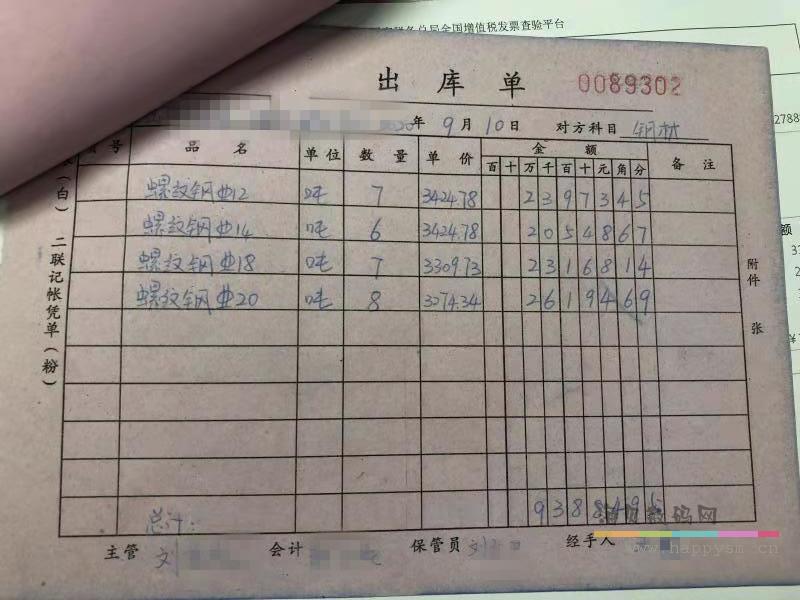 总局全国增值税发票查验平台
出库单 0089302
年 9月10日 对方科目 钢材
号 品名 单位 数量 单价 金额 备注
百 十 万 千 百 十 元 角 分
螺纹钢Φ12 吨 7 3424.78 2 3 9 7 3 4 5
螺纹钢Φ14 吨 6 3424.78 2 0 5 4 8 6 7
螺纹钢Φ18 吨 7 3309.73 2 3 1 6 8 1 4
螺纹钢Φ20 吨 8 3274.34 2 6 1 9 4 6 9
总计: 9 3 8 8
主管 刘 会计 保管员 刘 经手人
(白) 二联记帐凭单(粉)
附件 张
2788
额
数码网
www.happysm.cn